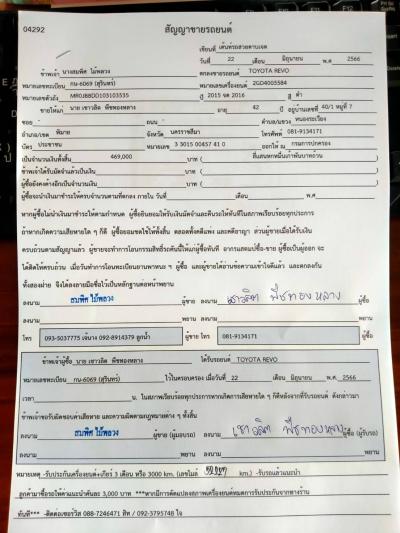 04292
สัญญาขายรถยนต์
เขียนที่ เต้นท์รถสวยตามเจต
วันที่ 22 เดือน มิถุนายน พ.ศ 2566
ข้าพเจ้า นางสมพิศ ไม้พลวง ตกลงขายรถยนต์ TOYOTA REVO
หมายเลขทะเบียน กน-6069 (สุรินทร์) หมายเลขเครื่องยนต์ 2GD4005584
หมายเลขตัวถัง MR0JB8DD103103535 ปี 2015 จด 2016 สี ดำ
ขายให้แก่ นาย เชาวลิต พืชทองหลาง อายุ 42 ปี อยู่บ้านเลขที่ 40/1 หมู่ที่ 7
ซอย - ถนน - ตำบล/แขวง หนองระเวียง
อำเภอ/เขต พิมาย จังหวัด นครราชสีมา โทรศัพท์ 081-9134171
บัตร ประชาชน หมายเลข 3 3015 00457 41 0 ออกให้ ณ กรมการปกครอง
เป็นจำนวนเงินทั้งสิ้น 469,000 บาท ( สี่แสนหกหมื่นเก้าพันบาทถ้วน )
ข้าพเจ้าได้รับมัดจำแล้วเป็นเงิน บาท ( )
ผู้ซื้อยังคงค้างอีกเป็นจำนวนเงิน บาท ( )
ผู้ซื้อจะนำเงินมาชำระให้ครบจำนวนตามที่ตกลง ภายใน วันที่ เดือน พ.ศ
หากผู้ซื้อไม่นำเงินมาชำระให้ตามกำหนด ผู้ซื้อยินยอมให้ริบเงินมัดจำและคืนรถให้ทันทีในสภาพเรียบร้อยทุกประการ
ถ้าหากเกิดความเสียหายใด ๆ ก็ดี ผู้ซื้อยอมชดใช้ให้ทั้งสิ้น ตลอดทั้งคดีแพ่ง และคดีอาญา ส่วนผู้ขายเมื่อได้รับเงิน
ครบถ้วนตามสัญญาแล้ว ผู้ขายจะทำการโอนกรรมสิทธิ์รถคันนี้ให้แก่ผู้ซื้อทันที อากรแสตมป์ซื้อ-ขาย ผู้ซื้อเป็นผู้ออก จะ
ได้ติดให้ครบถ้วน เมื่อวันทำการโอนทะเบียนยานพาหนะ ฯ ผู้ซื้อ และผู้ขายได้อ่านข้อความเข้าใจดีแล้ว และตกลงกัน
ทั้งสองฝ่าย จึงได้ลงลายมือชื่อไว้เป็นหลักฐานต่อหน้าพยาน
ลงนาม สมพิศ ไม้พลวง ผู้ขาย ลงนาม เชาวลิต พืชทองหลาง ผู้ซื้อ
ลงนาม พยาน ลงนาม พยาน
โทร 093-5037775 เจ้นาง 092-8914379 ลูกน้ำ ผู้ขาย โทร 081-9134171 ผู้ซื้อ
ข้าพเจ้าผู้ซื้อ นาย เชาวลิต พืชทองหลาง ได้รับรถยนต์ TOYOTA REVO
หมายเลขทะเบียน กน-6069 (สุรินทร์) ไว้ในครอบครอง เมื่อวันที่ 22 เดือน มิถุนายน พ.ศ. 2566
เวลา น. ในสภาพเรียบร้อยทุกประการหากเกิดการเสียหายใด ๆ ก็ดีหลังจากที่รับรถยนต์ ดังกล่าวมา
ข้าพเจ้าขอรับผิดชอบค่าเสียหาย และความผิดตามกฎหมายต่าง ๆ ทั้งสิ้น
ลงนาม สมพิศ ไม้พลวง ผู้ขาย (ผู้มอบรถ) ลงนาม เชาวลิต พืชทองหลาง ผู้ซื้อ (ผู้รับรถ)
ลงนาม พยาน ลงนาม พยาน
หมายเหตุ -รับประกันเครื่องยนต์+เกียร์ 3 เดือน หรือ 3000 km. (เลขไมล์ km.) -รับรถแล้วแนะนำ
ลูกค้ามาซื้อรถให้ค่าแนะนำคันละ 3,000 บาท ***หากมีการดัดแปลงสภาพเครื่องยนต์หมดการรับประกันจากทางร้าน
ทันที*** -ติดต่อเซอร์วิส 088-7246471 สิท / 092-3795748 ใจ